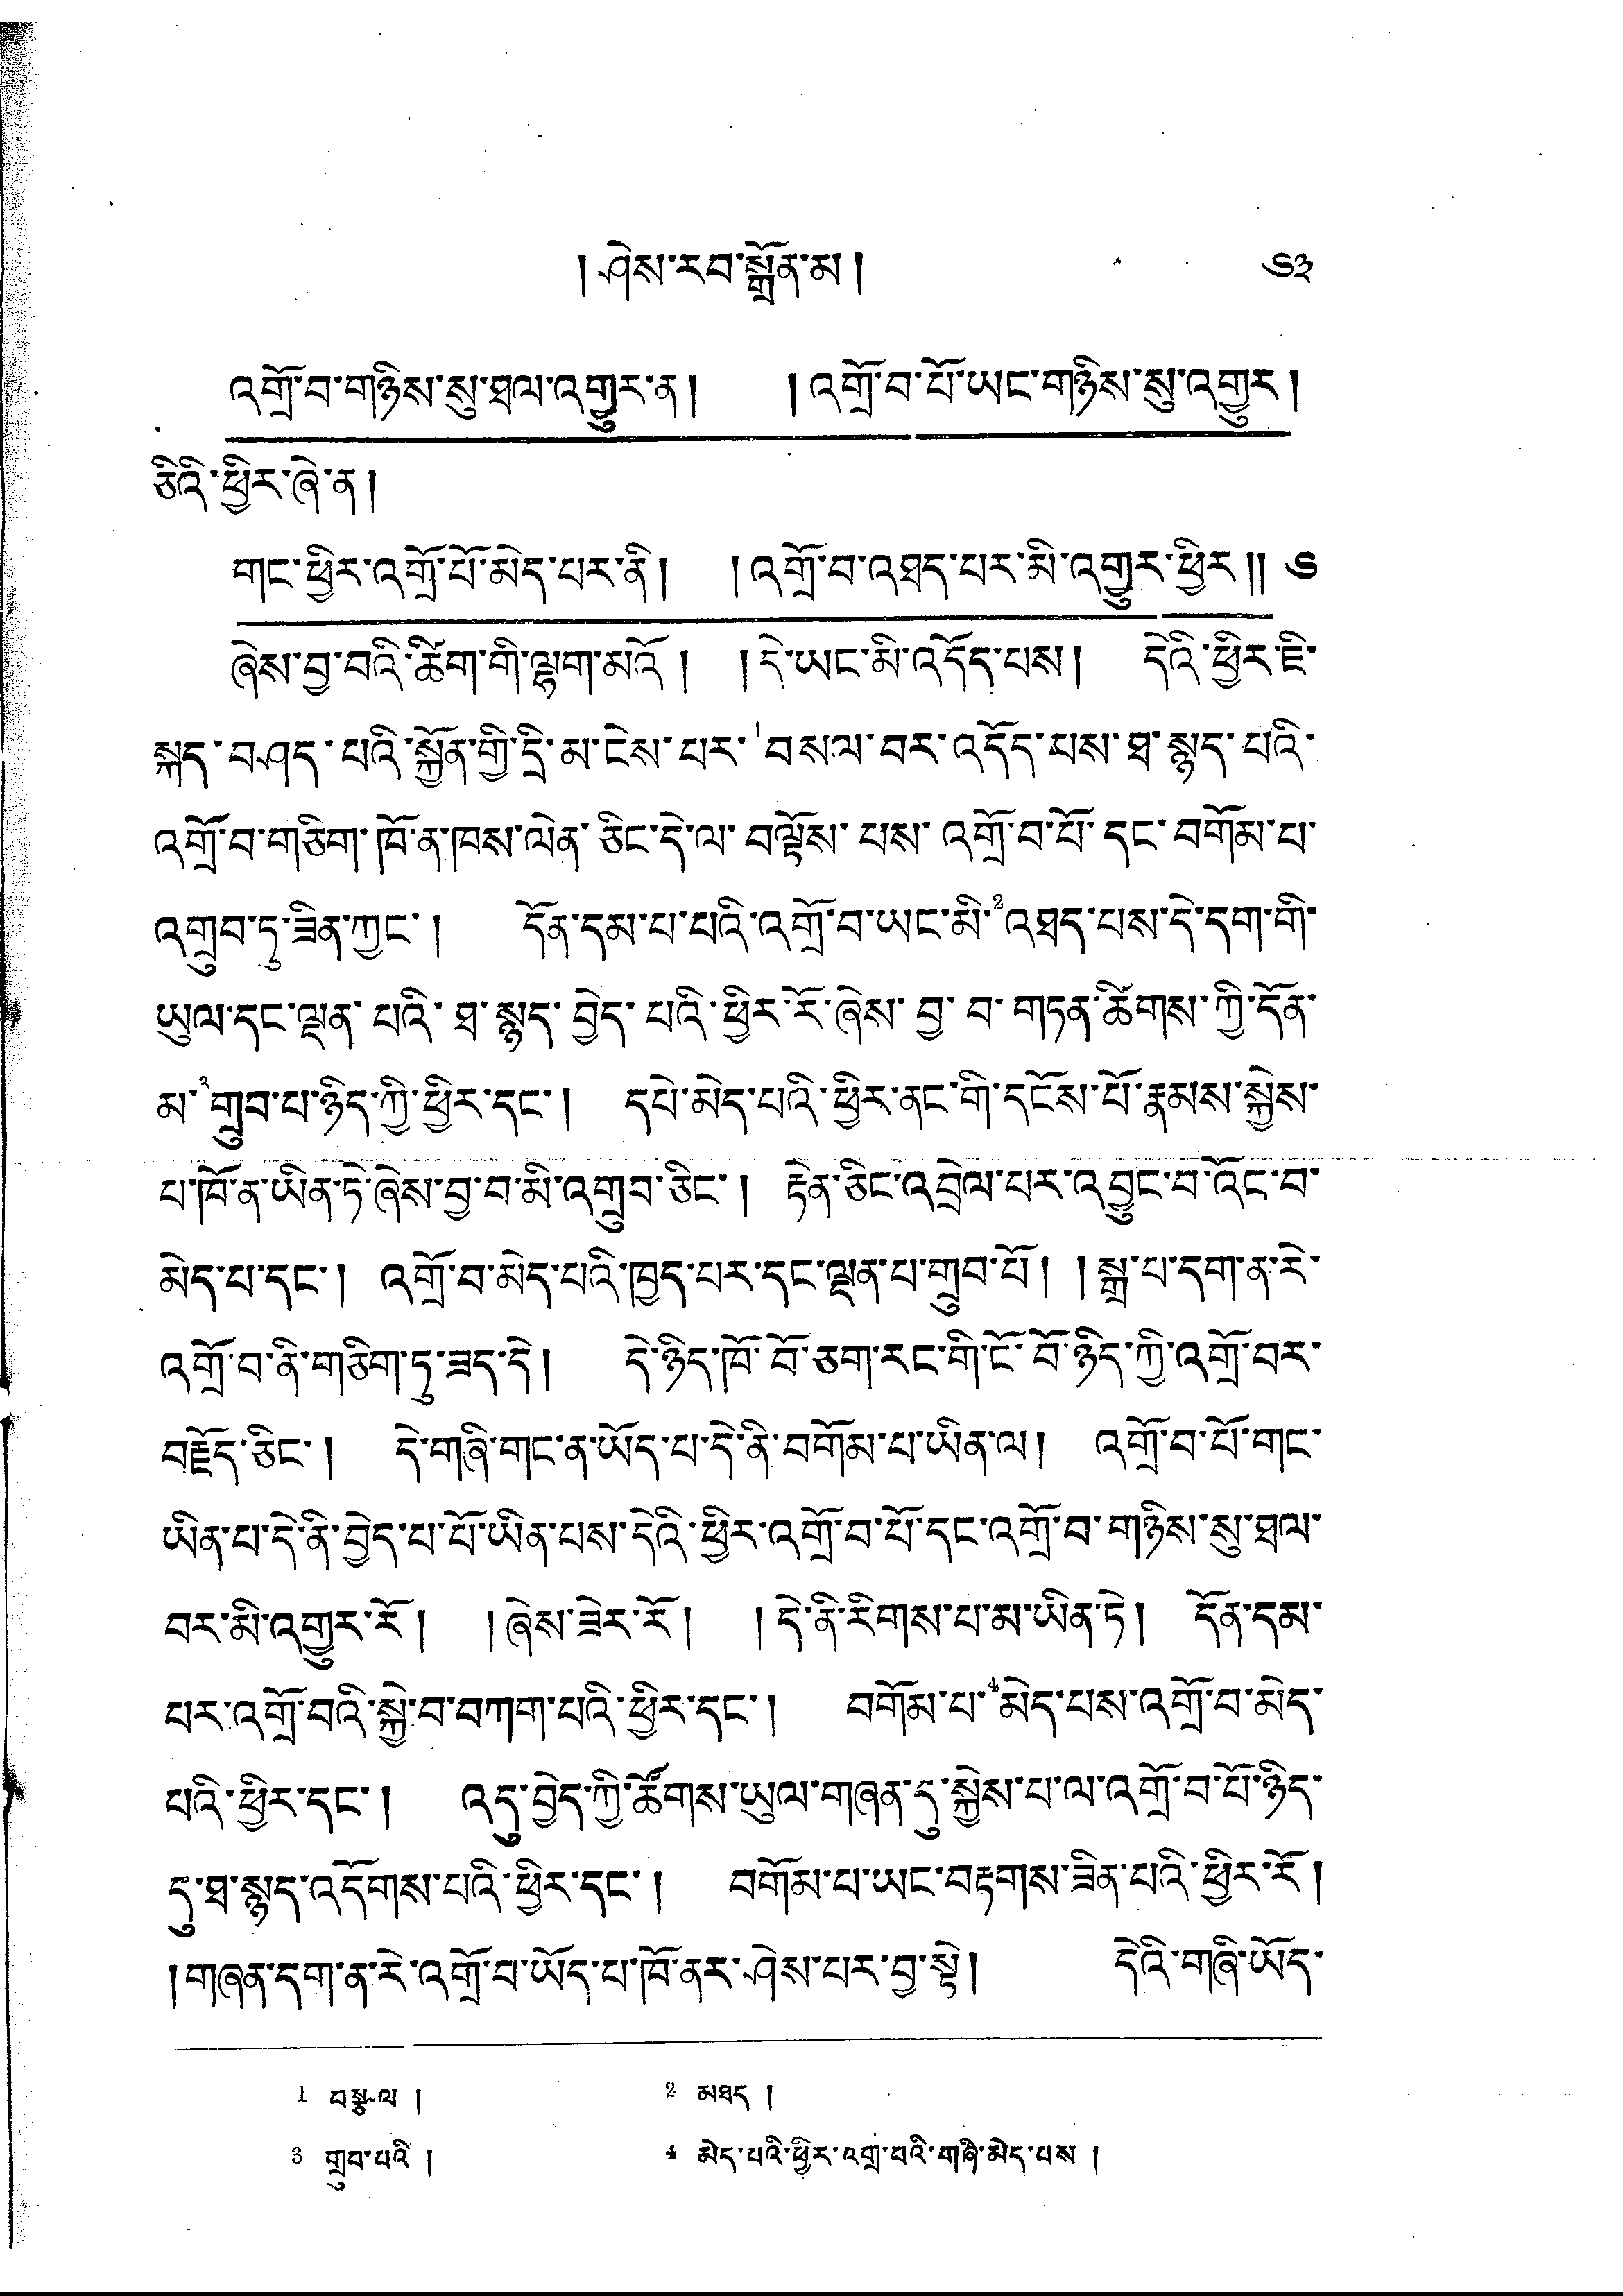 ། ཤེས་རབ་སྒྲོན་མ །  ༦༣
འགྲོ་བ་གཉིས་སུ་ཐལ་འགྱུར་ན །  །འགྲོ་བ་པོ་ཡང་གཉིས་སུ་འགྱུར །
ཅིའི་ཕྱིར་ཞེ་ན །
གང་ཕྱིར་འགྲོ་པོ་མེད་པར་ནི །  །འགྲོ་བ་འཐད་པར་མི་འགྱུར་ཕྱིར ༎ ༦
ཞེས་བྱ་བའི་ཚིག་གི་ལྷག་མའོ །  །དེ་ཡང་མི་འདོད་པས །  དེའི་ཕྱིར་ཇི་
སྐད་བཤད་པའི་སྐྱོན་གྱི་དྲི་མ་ངེས་པར་1བསལ་བར་འདོད་པས་ཐ་སྙད་པའི་
འགྲོ་བ་གཅིག་ཁོ་ན་ཁས་ལེན་ཅིང་དེ་ལ་བལྟོས་པས་འགྲོ་བ་པོ་དང་བགོམ་པ་
འགྲུབ་ཏུ་ཟིན་ཀྱང་ །  དོན་དམ་པ་པའི་འགྲོ་བ་ཡང་མི་2འཐད་པས་དེ་དག་གི་
ཡུལ་དང་ལྡན་པའི་ཐ་སྙད་བྱེད་པའི་ཕྱིར་རོ་ཞེས་བྱ་བ་གཏན་ཚིགས་ཀྱི་དོན་
མ་3གྲུབ་པ་ཉིད་ཀྱི་ཕྱིར་དང་ །  དཔེ་མེད་པའི་ཕྱིར་ནང་གི་དངོས་པོ་རྣམས་སྐྱེས་
པ་ཁོ་ན་ཡིན་ཏེ་ཞེས་བྱ་བ་མི་འགྲུབ་ཅིང་ །  རྟེན་ཅིང་འབྲེལ་པར་འབྱུང་བ་འོང་བ་
མེད་པ་དང་ །  འགྲོ་བ་མེད་པའི་ཁྱད་པར་དང་ལྡན་པ་གྲུབ་པོ །  །སྒྲ་པ་དག་ན་རེ་
འགྲོ་བ་ནི་གཅིག་ཏུ་ཟད་དེ །  དེ་ཉིད་ཁོ་བོ་ཅག་རང་གི་ངོ་བོ་ཉིད་ཀྱི་འགྲོ་བར་
བརྗོད་ཅིང་ །  དེ་གཞི་གང་ན་ཡོད་པ་དེ་ནི་བགོམ་པ་ཡིན་ལ །  འགྲོ་བ་པོ་གང་
ཡིན་པ་དེ་ནི་བྱེད་པ་པོ་ཡིན་པས་དེའི་ཕྱིར་འགྲོ་བ་པོ་དང་འགྲོ་བ་གཉིས་སུ་ཐལ་
བར་མི་འགྱུར་རོ །  །ཞེས་ཟེར་རོ །  །དེ་ནི་རིགས་པ་མ་ཡིན་ཏེ །  དོན་དམ་
པར་འགྲོ་བའི་སྐྱེ་བ་བཀག་པའི་ཕྱིར་དང་ །  བགོམ་པ་4མེད་པས་འགྲོ་བ་མེད་
པའི་ཕྱིར་དང་ །  འདུ་བྱེད་ཀྱི་ཚོགས་ཡུལ་གཞན་དུ་སྐྱེས་པ་ལ་འགྲོ་བ་པོ་ཉིད་
དུ་ཐ་སྙད་འདོགས་པའི་ཕྱིར་དང་ །  བགོམ་པ་ཡང་བརྟགས་ཟིན་པའི་ཕྱིར་རོ །
།གཞན་དག་ན་རེ་འགྲོ་བ་ཡོད་པ་ཁོ་ནར་ཤེས་པར་བྱ་སྟེ །  དེའི་གཞི་ཡོད་
1 བསྩལ །  2 མཐད །
3 གྲུབ་པའི །  4 མེད་པའི་ཕྱིར་འགྲ་བའི་གཞི་མེད་པས །